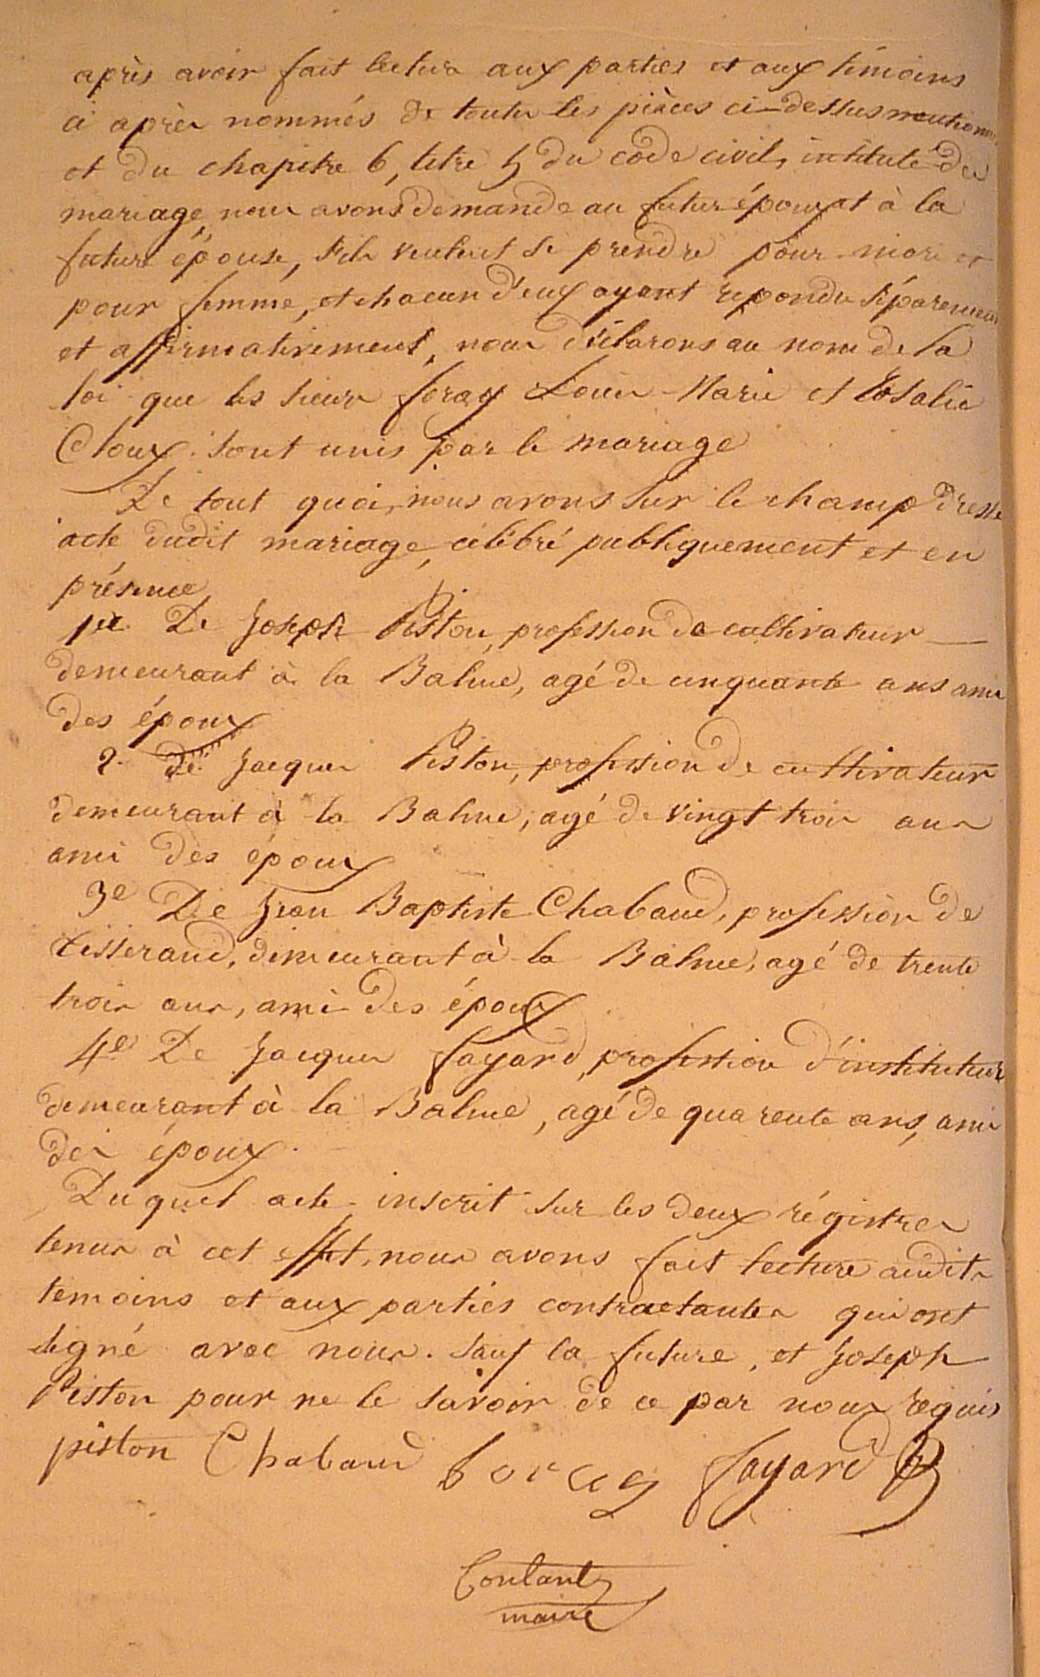 après avoir fait lecture aux parties et aux témoins
ci après nommés de toutes les pièces ci-dessus mention
et du chapitre 6, titre 5 du code civil, intitulé du
mariage, nous avons demandé au futur époux et à la
future épouse, s'ils veulent se prendre pour mari et
pour femme, et chacun d'eux ayant repondu séparemen
et affirmativement, nous déclarons au nom de la
loi que les sieurs foray Louis Marie et Rosalie
Cloux sont unis par le mariage
De tout quoi, nous avons sur le champ dressé
acte dudit mariage, célébré publiquement et en
présence
1er De Joseph Piston, profession de cultivateur
demeurant à la Balme, agé de cinquante ans ami
des époux
2. de Jacques Piston, profession de cultivateur
demeurant à la Balme, agé de vingt trois ans
ami des époux
3e De Jean Baptiste Chabaud, profession de
tisserand, demeurant à la Balme, agé de trente
trois ans, ami des époux
4e De Jacques fayard, profession d'instituteur
demeurant à la Balme, agé de quarente ans, ami
des époux.
Duquel acte inscrit sur les deux régistres
tenus à cet effet, nous avons fait lecture audits
temoins et aux parties contractantes qui ont
signé avec nous. sauf la future, et Joseph
Piston pour ne le savoir de ce par nous requis
piston Chabaud foray fayard
Coutant
maire